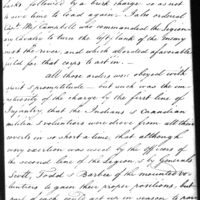 backs followed by a brisk charge, so as not
to give time to load again. I also ordered
Capt. Mis Campbell who commanded the Legion-
ary Cavalry to turn the left flank of the Enemy
next the river, and which afforded a favorable
field for that corps to act in. —
all those orders were obeyed with
spirit & promptitude — but such was the im-
petuosity of the charge by the first line of
Infantry that the Indians & Canadian
militia & volunteers were drove from all their
coverts in so short a time, that although
every exertion was used by the officers of
the second line of the Legion & by Generals
Scott, Todd & Barbee of the mounted vo-
lunteers to gain their proper positions, but
part of each could get up in season to par